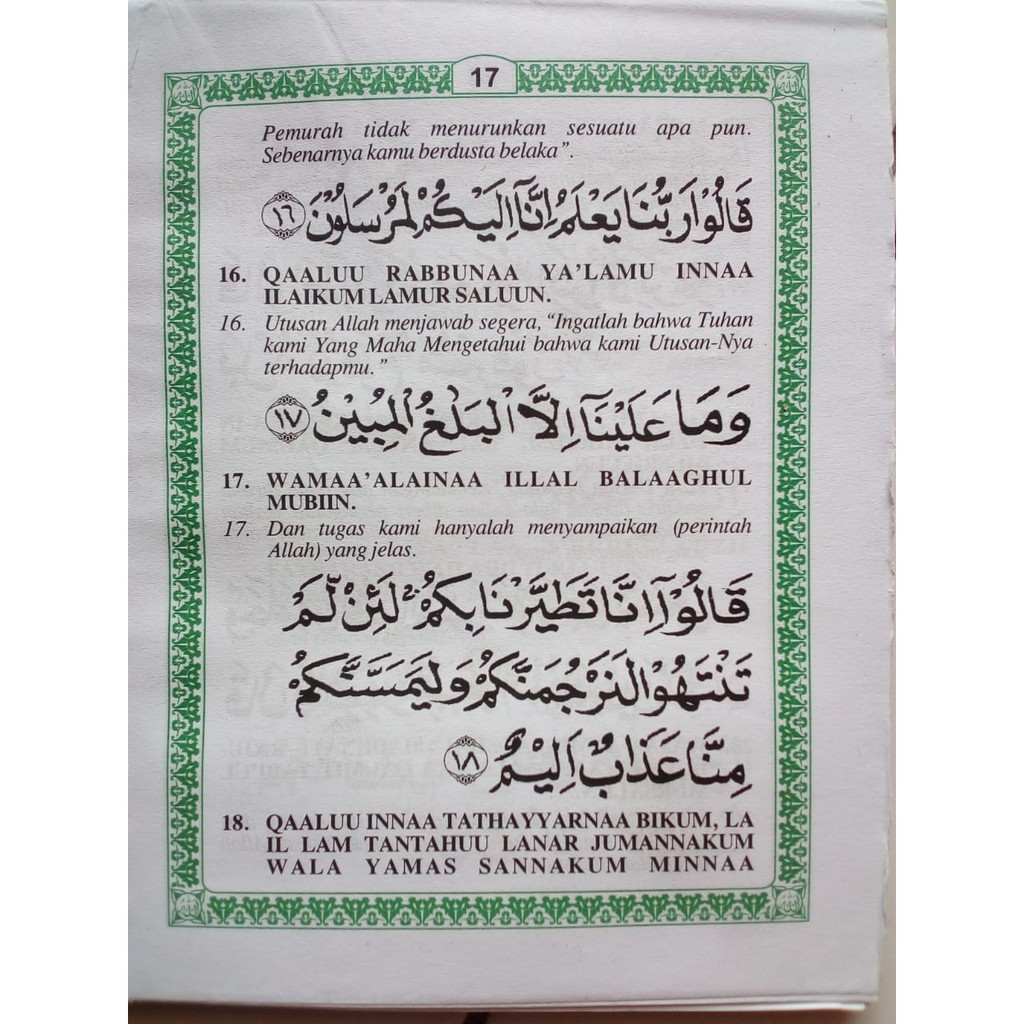 17
Pemurah tidak menurunkan sesuatu apa pun.
Sebenarnya kamu berdusta belaka”.
قَالُوْا رَبُّنَا يَعْلَمُ اِنَّآ اِلَيْكُمْ لَمُرْسَلُوْنَ ١٦
16. QAALUU RABBUNAA YA’LAMU INNAA
ILAIKUM LAMUR SALUUN.
16. Utusan Allah menjawab segera, “Ingatlah bahwa Tuhan
kami Yang Maha Mengetahui bahwa kami Utusan-Nya
terhadapmu.”
وَمَا عَلَيْنَآ اِلَّا الْبَلٰغُ الْمُبِيْنُ ١٧
17. WAMAA’ALAINAA ILLAL BALAAGHUL
MUBIIN.
17. Dan tugas kami hanyalah menyampaikan (perintah
Allah) yang jelas.
قَالُوْٓا اِنَّا تَطَيَّرْنَا بِكُمْۚ لَئِنْ لَّمْ
تَنْتَهُوْا لَنَرْجُمَنَّكُمْ وَلَيَمَسَّنَّكُمْ
مِنَّا عَذَابٌ اَلِيْمٌ ١٨
18. QAALUU INNAA TATHAYYARNAA BIKUM, LA
IL LAM TANTAHUU LANAR JUMANNAKUM
WALA YAMAS SANNAKUM MINNAA